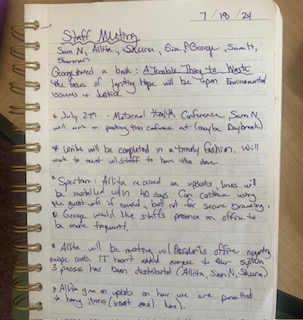 7/18/24
Staff Meeting
Sam N, Ailita, Gia, George, Sam H,
George shared a book: A Terrible Thing to Waste
the focus of Igniting Hope will be upon Environmental
* July 27th - Maternal Health Conference, Sam N
will work on putting this conference out (maybe Daybreak)
* Links will be completed in a timely fashion. Will
work to meet w/ staff to have this done
* Spectrum: Ailita received an update, lines will
be installed w/in 40 days. Can continue using
the guest wifi if needed, but not for secure browsing.
* George would like staff's presence in office to
be more frequent.
* Ailita will be meeting w/ President's office regarding
cards. IT hasn't added everyone to our system
3 passes has been distributed (Ailita, Sam N,
* Ailita gave an update on how we are permitted
to hang items (insert email here).